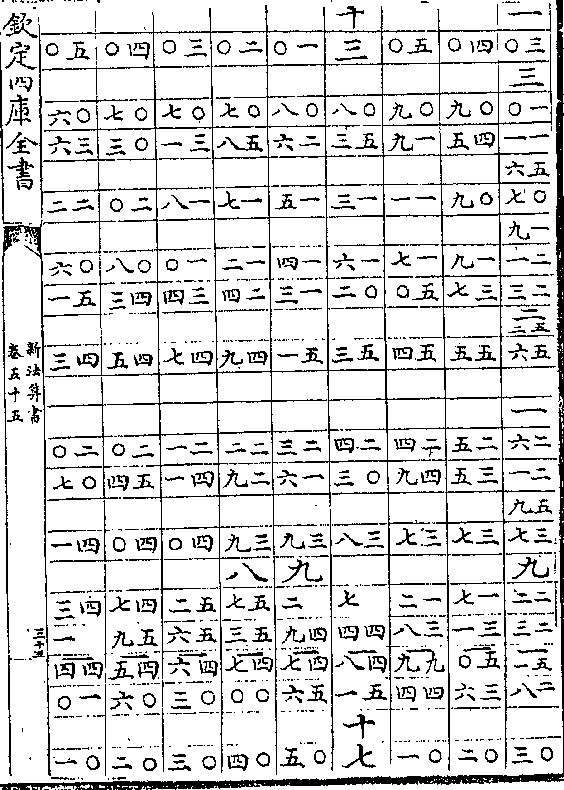 欽定四庫全書
新法算書
卷五十五
三十五
一 十
三〇 四〇 五〇 三 一〇 二〇 三〇 四〇 五〇
三
一〇 〇九 〇九 〇八 〇八 〇七 〇七 〇七 〇六
一一 四五 一九 五三 二六 五八 三一 〇三 三六
五六
〇七 〇九 一一 一三 一五 一七 一八 二〇 二二
一九
二一 一九 一七 一六 一四 一二 一〇 〇八 〇六
二三 三七 五〇 〇二 一三 二四 三四 四三 五一
二
五三
五六 五五 五四 五三 五一 四九 四七 四五 四三
一
二六 二五 二四 二四 二三 二二 二一 二〇 二〇
二一 三五 四九 〇三 一六 二九 四一 五四 〇七
五九
三七 三七 三七 三八 三九 三九 四〇 四〇 四一
九 九 八
二二 一七 一二 七 二 五七 五二 四七 四三
二三 三一 三八 四四 四九 五三 五六 五九 一
五一 五〇 九九 四八 四七 四七 四六 四五 四四
二八 三六 四四 五一 五六 〇〇 〇三 〇六 一〇
十
三〇 二〇 一〇 七 五〇 四〇 三〇 二〇 一〇